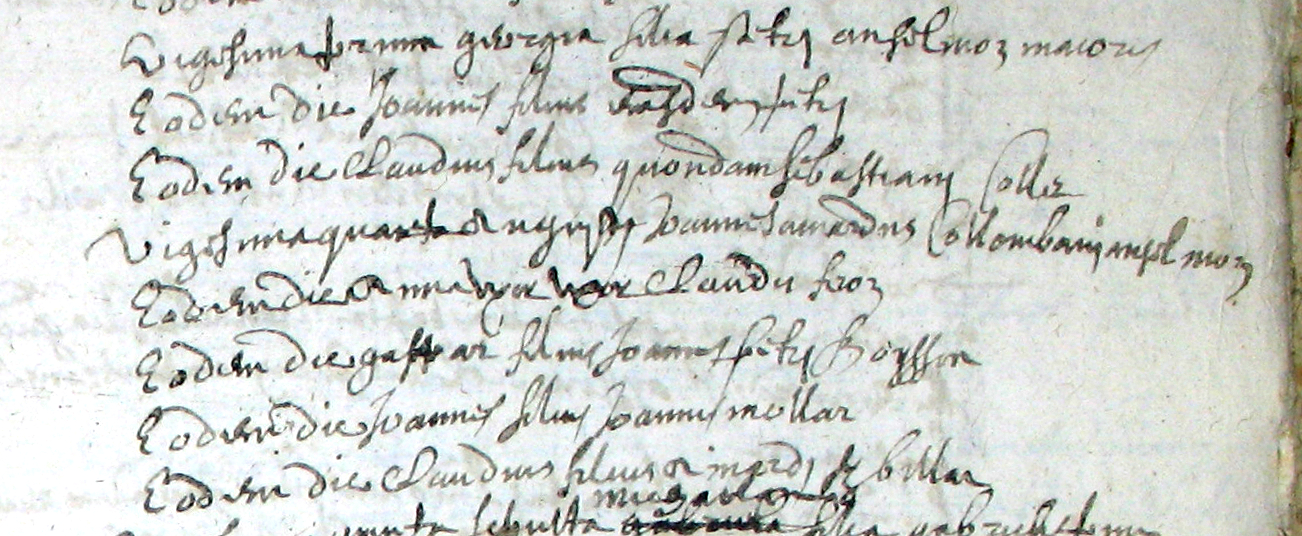 Vigesima prima georgia filia petri anselmoz maioris
Eodem die Joannes filius eiusdem petri
Eodem die Claudius filius quondam sebastiani Collez
Vigesima quarta augusti Joannes amardus Collombani anselmoz
Eodem die Anna uxor Claudii
Eodem die gaspar filius Joannis petri
Eodem die Joannes filius Joannis mollar
Eodem die Claudius filius amardi
sepulta filia gabrielis